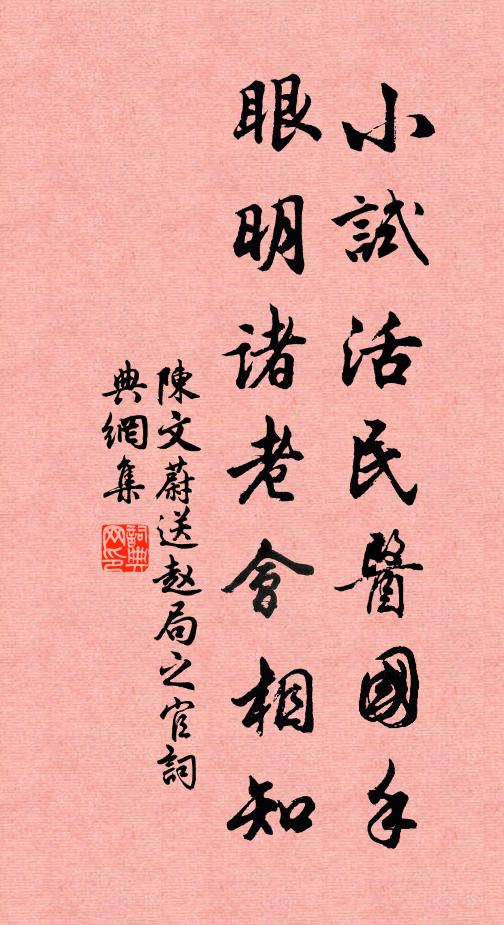 小試活民醫國手
眼明諸老會相知
陳文蔚送趙局之官詞
典網集
詞典
网印